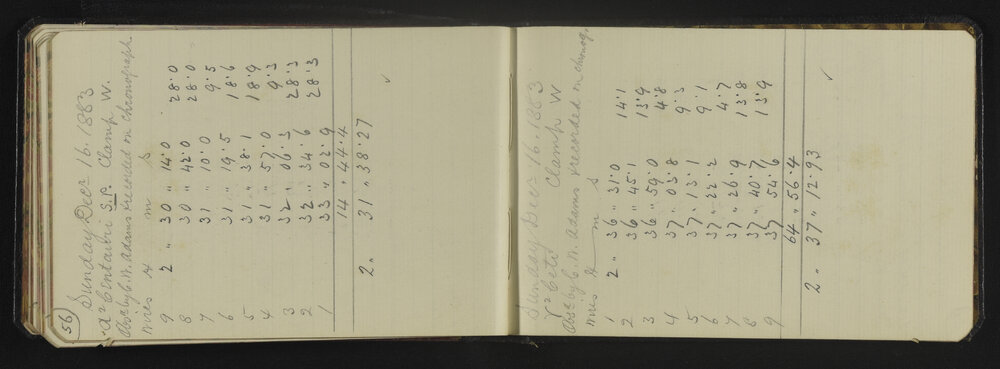 56
Sunday Decr 16. 1883
α² Centauri S.P. Clamp W.
Obsd by C. N. Adams & recorded on chronograph.
Wires H m s
9 2 " 30 " 14.0 28.0
8 30 " 42.0 28.0
7 31 " 10.0 9.5
6 31 " 19.5 18.6
5 31 " 38.1 18.9
4 31 " 57.0 9.3
3 32 " 06.3 28.3
2 32 " 34.6 28.3
1 33 " 02.9
14 " 44.4
2 " 31 " 38.27
✓
Sunday Decr 16. 1883
γ² Ceti Clamp W
Obsd by C. N. Adams & recorded on chronog.
Wires H m s
1 2 " 36 " 31.0 14.1
2 36 " 45.1 13.9
3 36 " 59.0 4.8
4 37 " 03.8 9.3
5 37 " 13.1 9.1
6 37 " 22.2 4.7
7 37 " 26.9 13.8
8 37 " 40.7 13.9
9 37 " 54.6
64 " 56.4
2 " 37 " 12.93
✓